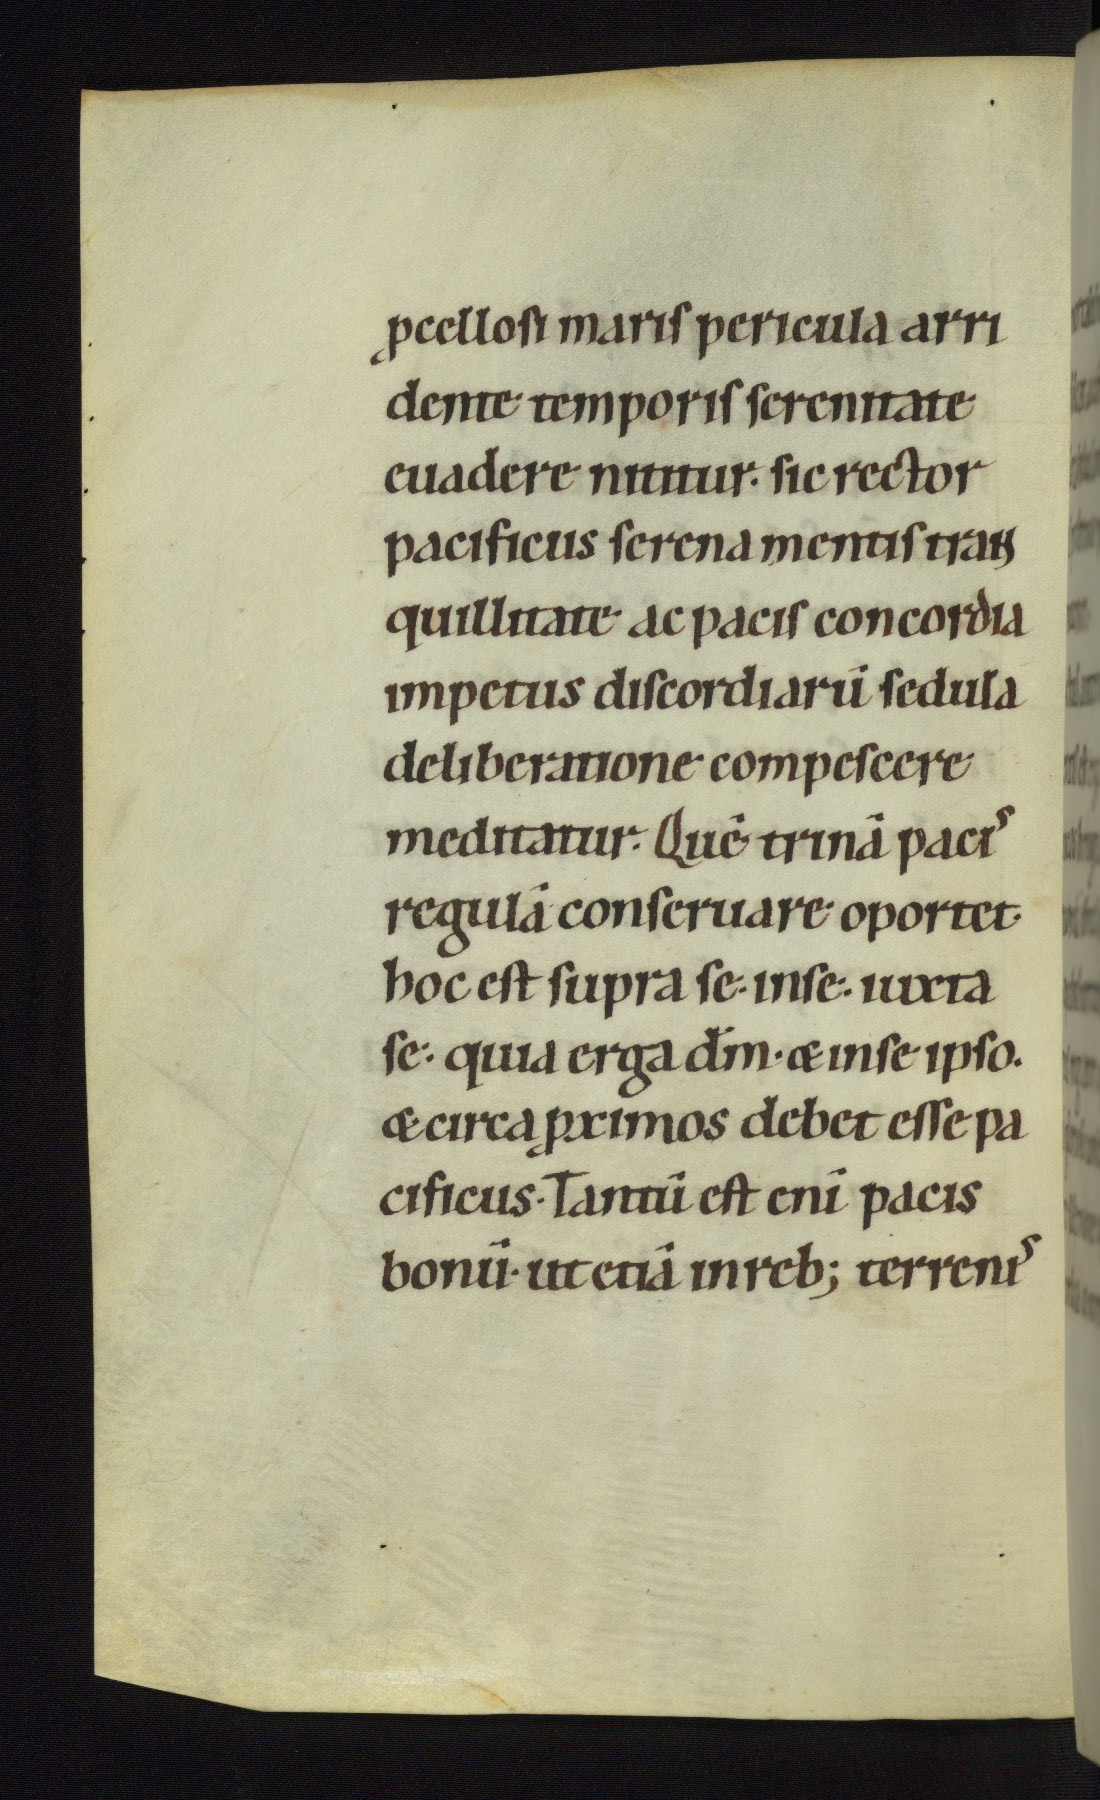 ꝓcellosi maris pericula arri
dente temporis serenitate
euadere nititur. sic rector
pacificus serena mentis tran
quillitate ac pacis concordia
impetus discordiarū sedula
deliberatione compescere
meditatur. Quē trinā pacis
regulā conseruare oportet.
hoc est supra se. in se. iuxta
se. quia erga dm̄. & in se ipso.
& circa ꝓximos debet esse pa
cificus. Tantū est enī pacis
bonū. ut etiā in reb; terrenis